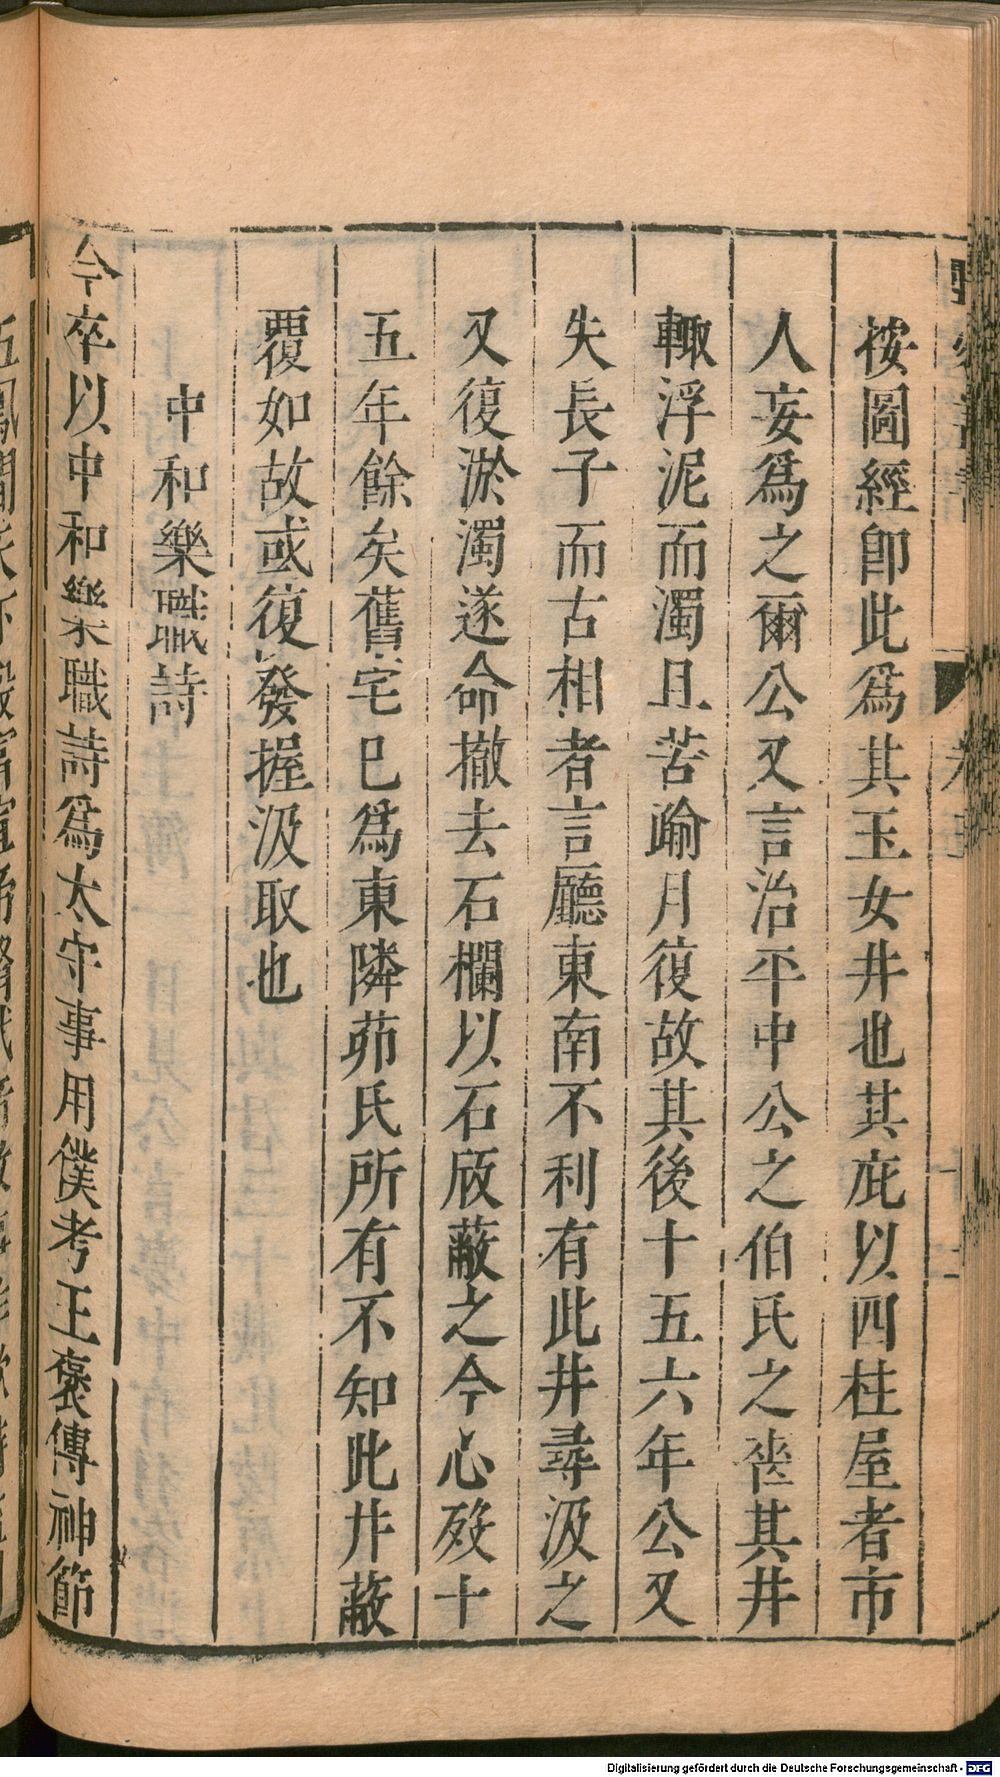 按圖經卽此爲其玉女井也其庇以四柱屋者市
人妄爲之爾公又言治平中公之伯氏之喪其井
輙浮泥而濁且苦踰月復故其後十五六年公又
失長子而古相者言廳東南不利有此井尋汲之
又復淤濁遂命撤去石欄以石版蔽之今心歿十
五年餘矣舊宅已爲東隣茆氏所有不知此井蔽
覆如故或復發握汲取也
中和樂職詩
今卒以中和樂職詩爲太守事用僕考王褒傳神節
Digitalisierung gefördert durch die Deutsche Forschungsgemeinschaft - DFG